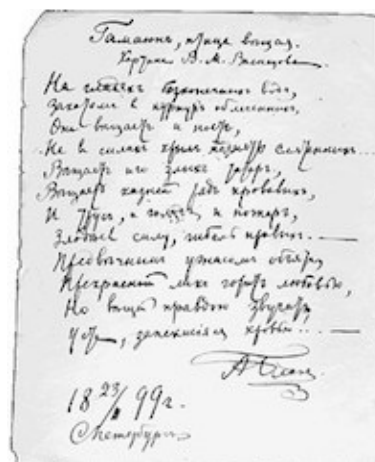 Гамаюнъ, птица вѣщая.
Картина В. М. Васнецова
На гладяхъ безконечныхъ водъ,
Закатомъ в пурпуръ облеченныхъ,
Она вѣщаетъ и поетъ,
Не в силахъ крылъ поднять смятенныхъ...
Вѣщаетъ иго злыхъ татаръ,
Вѣщаетъ казней рядъ кровавыхъ,
И трусъ, и голодъ, и пожаръ,
Злодѣевъ силу, гибель правыхъ... —
Предвѣчнымъ ужасомъ объятъ,
Прекрасный ликъ горитъ любовью,
Но вѣщей правдою звучатъ
Уста, запекшіяся кровью... —
А Блокъ
18 23/II 99 г.
С.Петербургъ